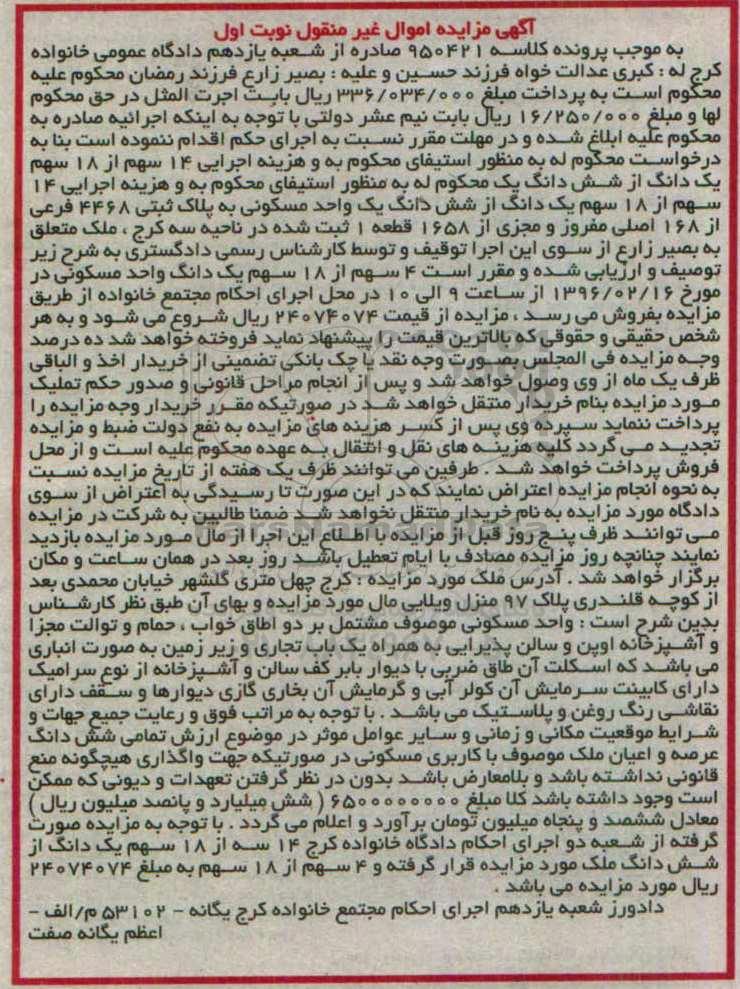 آگهی مزایده اموال غیر منقول نوبت اول
به موجب پرونده کلاسه ۹۵۰۴۲۱ صادره از شعبه یازدهم دادگاه عمومی خانواده
کرج له : کبری عدالت خواه فرزند حسین و علیه : بصیر زارع فرزند رمضان محکوم علیه
محکوم است به پرداخت مبلغ ۳۳۶/۰۳۴/۰۰۰ ریال بابت اجرت المثل در حق محکوم
لها و مبلغ ۱۶/۲۵۰/۰۰۰ ریال بابت نیم عشر دولتی با توجه به اینکه اجرائیه صادره به
محکوم علیه ابلاغ شده و در مهلت مقرر نسبت به اجرای حکم اقدام ننموده است بنا به
درخواست محکوم له به منظور استیفای محکوم به و هزینه اجرایی ۱۴ سهم از ۱۸ سهم
یک دانگ از شش دانگ یک محکوم له به منظور استیفای محکوم به و هزینه اجرایی ۱۴
سهم از ۱۸ سهم یک دانگ از شش دانگ یک واحد مسکونی به پلاک ثبتی ۴۴۶۸ فرعی
از ۱۶۸ اصلی مفروز و مجزی از ۱۶۵۸ قطعه ۱ ثبت شده در ناحیه سه کرج ، ملک متعلق
به بصیر زارع از سوی این اجرا توقیف و توسط کارشناس رسمی دادگستری به شرح زیر
توصیف و ارزیابی شده و مقرر است ۴ سهم از ۱۸ سهم یک دانگ واحد مسکونی در
مورخ ۱۳۹۶/۰۲/۱۶ از ساعت ۹ الی ۱۰ در محل اجرای احکام مجتمع خانواده از طریق
مزایده بفروش می رسد ، مزایده از قیمت ۲۴۰۷۴۰۷۴ ریال شروع می شود و به هر
شخص حقیقی و حقوقی که بالاترین قیمت را پیشنهاد نماید فروخته خواهد شد ده درصد
وجه مزایده فی المجلس بصورت وجه نقد یا چک بانکی تضمینی از خریدار اخذ و الباقی
ظرف یک ماه از وی وصول خواهد شد و پس از انجام مراحل قانونی و صدور حکم تملیک
مورد مزایده بنام خریدار منتقل خواهد شد در صورتیکه مقرر خریدار وجه مزایده را
پرداخت ننماید سپرده وی پس از کسر هزینه های مزایده به نفع دولت ضبط و مزایده
تجدید می گردد کلیه هزینه های نقل و انتقال به عهده محکوم علیه است و از محل
فروش پرداخت خواهد شد . طرفین می توانند ظرف یک هفته از تاریخ مزایده نسبت
به نحوه انجام مزایده اعتراض نمایند که در این صورت تا رسیدگی به اعتراض از سوی
دادگاه مورد مزایده به نام خریدار منتقل نخواهد شد ضمنا طالبین به شرکت در مزایده
می توانند ظرف پنج روز قبل از مزایده با اطلاع این اجرا از مال مورد مزایده بازدید
نمایند چنانچه روز مزایده مصادف با ایام تعطیل باشد روز بعد در همان ساعت و مکان
برگزار خواهد شد . آدرس ملک مورد مزایده : کرج چهل متری گلشهر خیابان محمدی بعد
از کوچه قلندری پلاک ۹۷ منزل ویلایی مال مورد مزایده و بهای آن طبق نظر کارشناس
بدین شرح است : واحد مسکونی موصوف مشتمل بر دو اطاق خواب ، حمام و توالت مجزا
و آشپزخانه اوپن و سالن پذیرایی به همراه یک باب تجاری و زیر زمین به صورت انباری
می باشد که اسکلت آن طاق ضربی با دیوار بابر کف سالن و آشپزخانه از نوع سرامیک
دارای کابینت سرمایش آن کولر آبی و گرمایش آن بخاری گازی دیوارها و سقف دارای
نقاشی رنگ روغن و پلاستیک می باشد . با توجه به مراتب فوق و رعایت جمیع جهات و
شرایط موقعیت مکانی و زمانی و سایر عوامل موثر در موضوع ارزش تمامی شش دانگ
عرصه و اعیان ملک موصوف با کاربری مسکونی در صورتیکه جهت واگذاری هیچگونه منع
قانونی نداشته باشد و بلامعارض باشد بدون در نظر گرفتن تعهدات و دیونی که ممکن
است وجود داشته باشد کلا مبلغ ۶۵۰۰۰۰۰۰۰۰ ( شش میلیارد و پانصد میلیون ریال )
معادل ششصد و پنجاه میلیون تومان برآورد و اعلام می گردد . با توجه به مزایده صورت
گرفته از شعبه دو اجرای احکام دادگاه خانواده کرج ۱۴ سه از ۱۸ سهم یک دانگ از
شش دانگ ملک مورد مزایده قرار گرفته و ۴ سهم از ۱۸ سهم به مبلغ ۲۴۰۷۴۰۷۴
ریال مورد مزایده می باشد .
دادورز شعبه یازدهم اجرای احکام مجتمع خانواده کرج یگانه - ۵۳۱۰۲ م/الف -
اعظم یگانه صفت